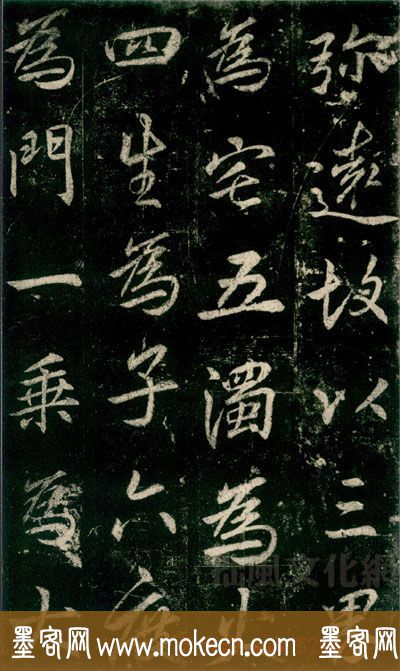 弥遠故以三
為宅五濁為
四生為子六
為門一乘為
風文化網
墨客网 www.mokecn.com 墨客网